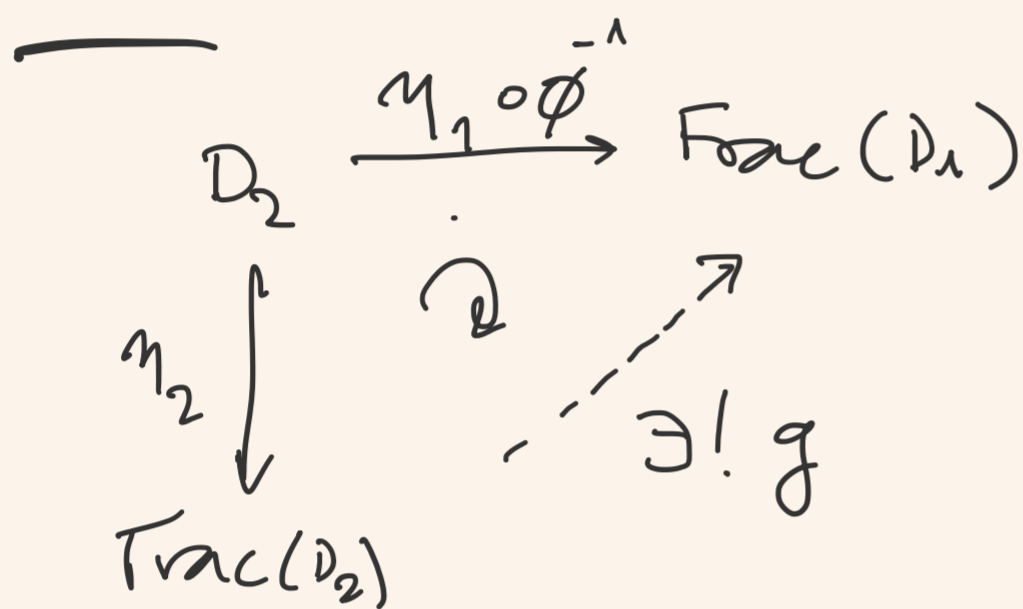 η₁ ∘ ϕ⁻¹
D₂ → Frac(D₁)
η₂
∃! g
Frac(D₂)